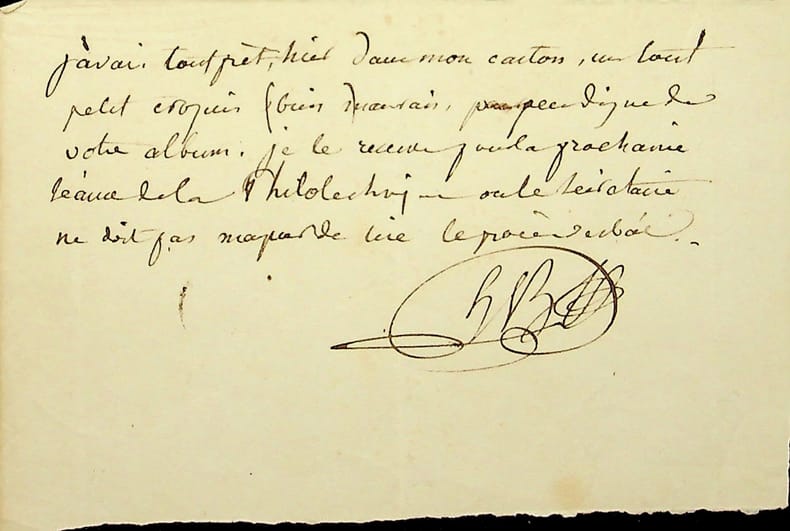 j'avais tout prêt, hier dans mon carton, un tout
petit croquis (bien) mauvais, peu digne de
votre album. je le réserve pour la prochaine
séance de la Philotechnique où le secrétaire
ne doit pas manquer de lire le procès verbal.